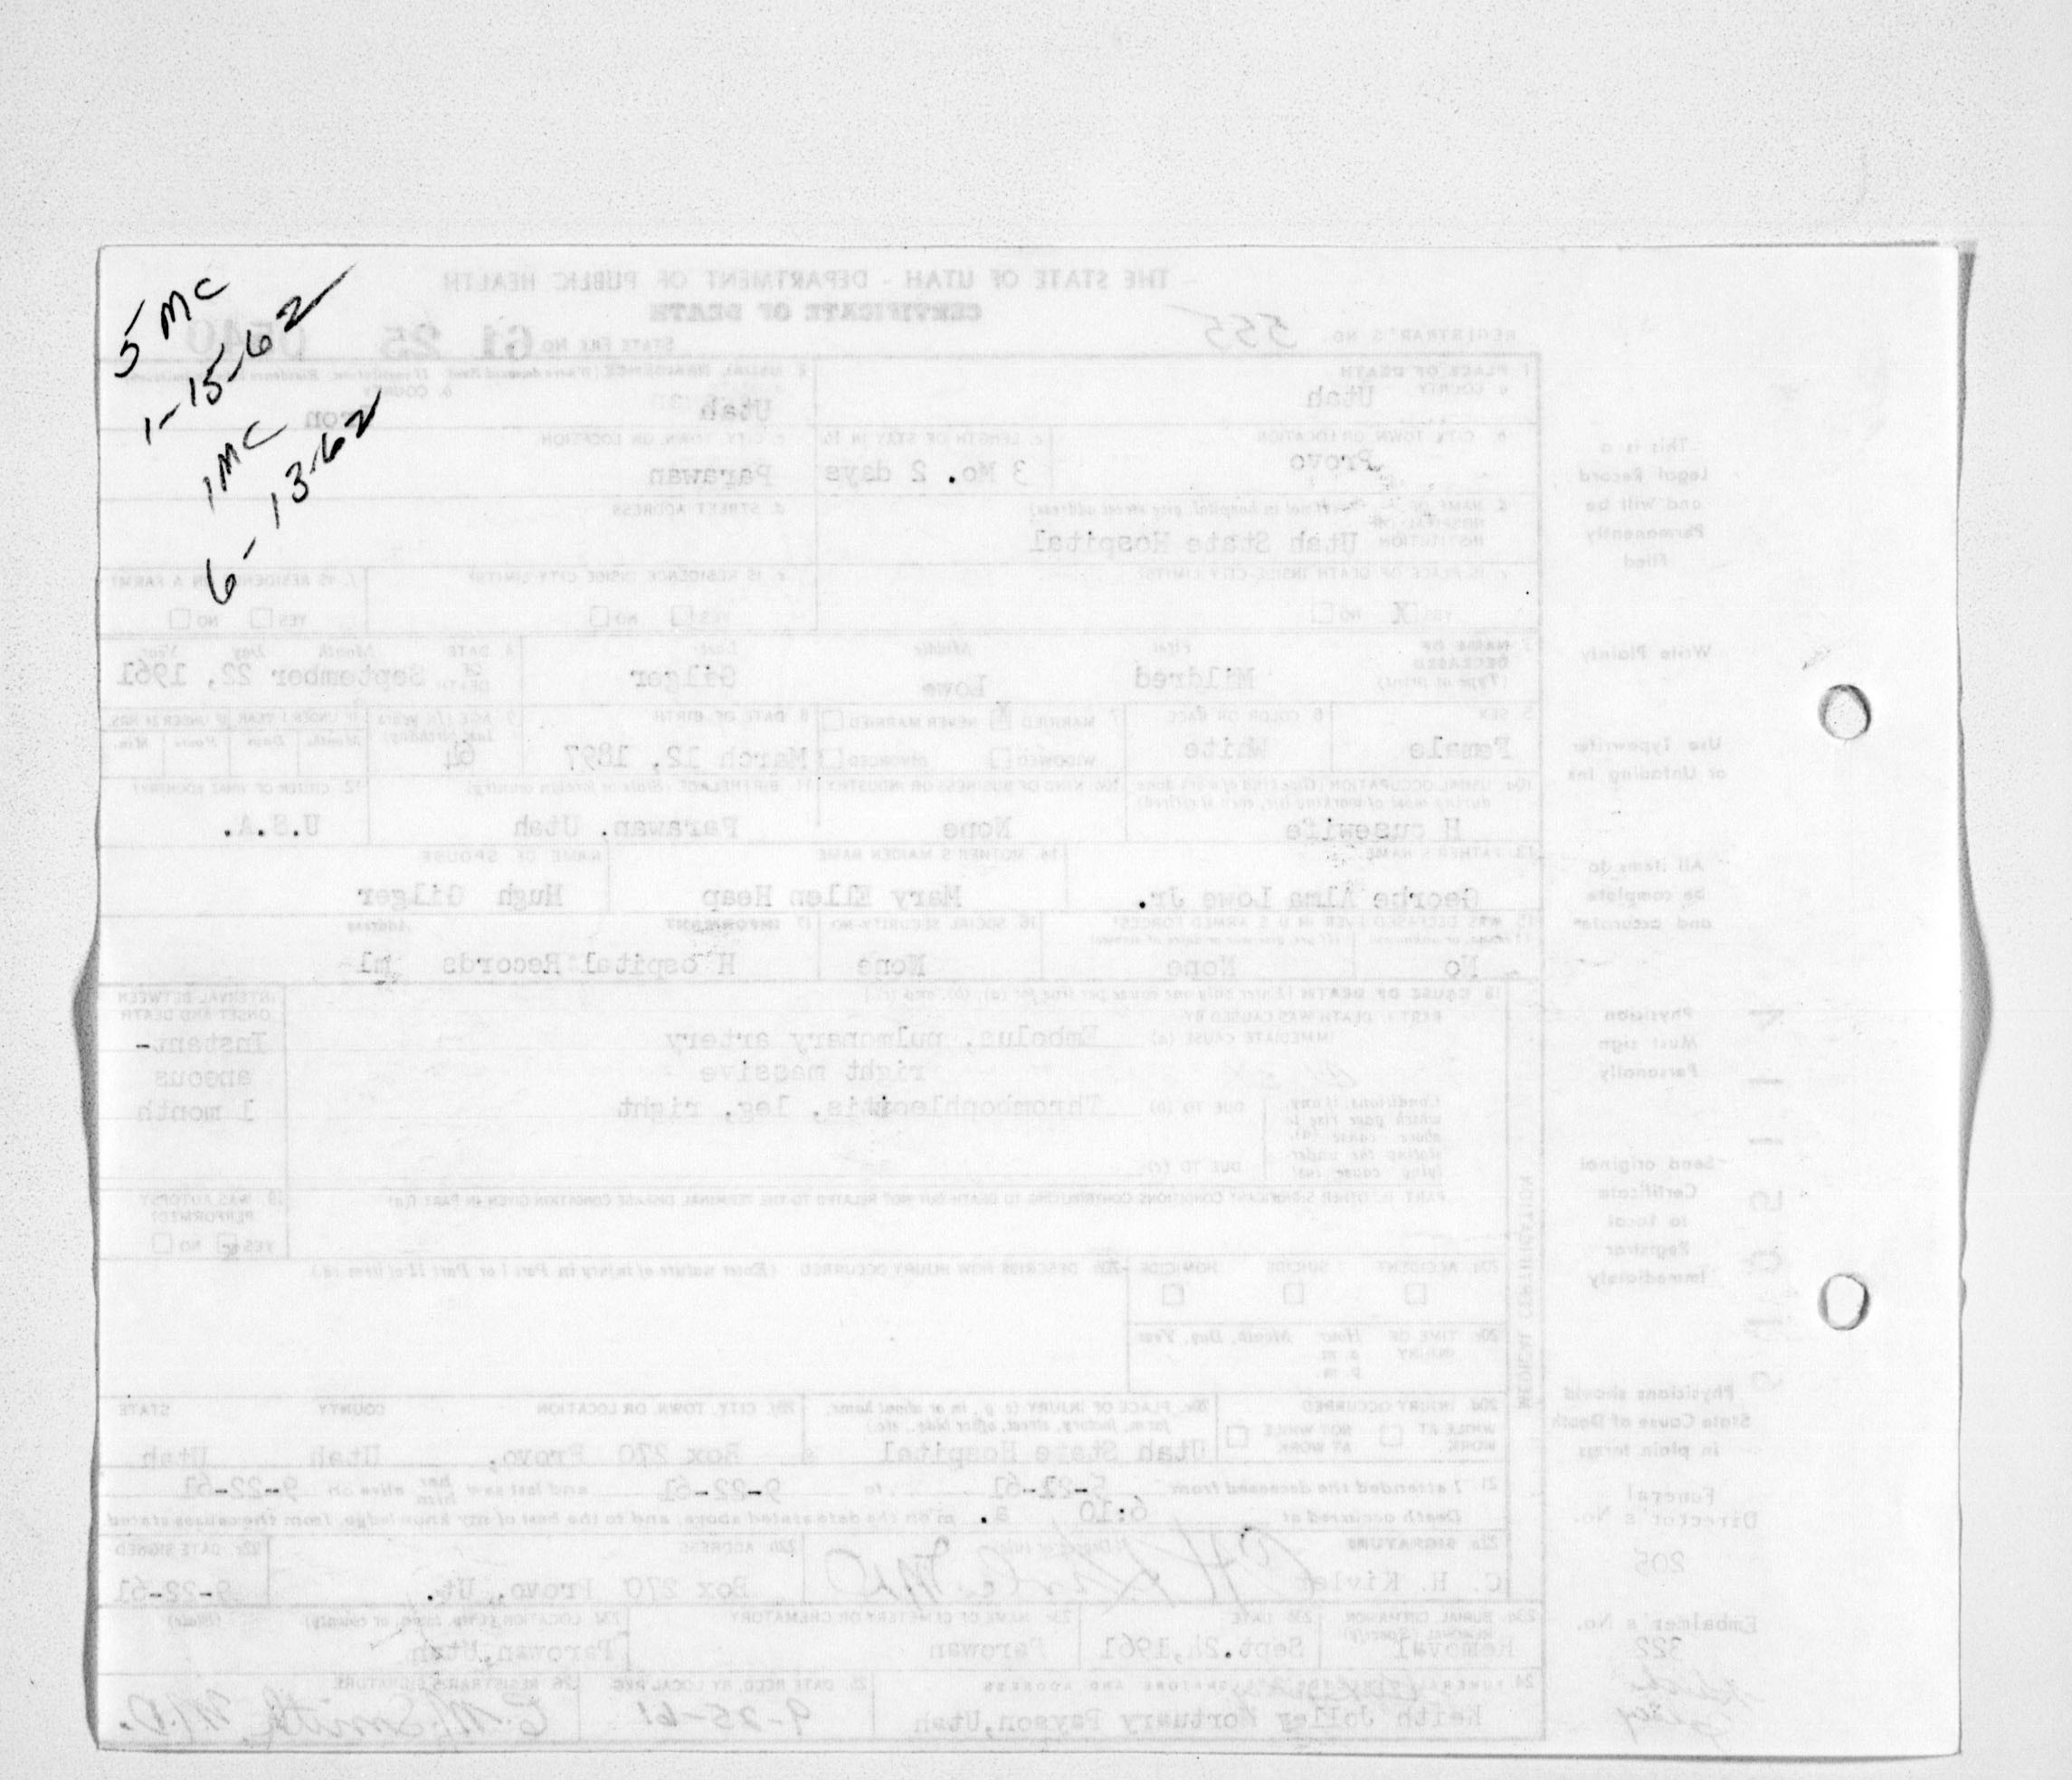 5 MC
1-15-62
1 MC
6-13-62
THE STATE OF UTAH - DEPARTMENT OF PUBLIC HEALTH
CERTIFICATE OF DEATH
REGISTRAR'S NO. 555
STATE FILE NO 61 25
1 PLACE OF DEATH
a COUNTY Utah
Utah
b. COUNTY
b. CITY, TOWN OR LOCATION
Provo
c. LENGTH OF STAY IN 1b
3 Mo. 2 days
c. CITY, TOWN, OR LOCATION
Parawan
d. STREET ADDRESS
Utah State Hospital
e. IS PLACE OF DEATH INSIDE CITY LIMITS?
YES X NO
e. IS RESIDENCE INSIDE CITY LIMITS?
YES NO
YES NO
3 NAME OF DECEASED
(Type or print)
First
Mildred
Middle
Lowe
Last
Gilger
4. DATE OF DEATH
Month Day Year
September 22, 1961
5 SEX
Female
6 COLOR OR RACE
White
7 MARRIED X NEVER MARRIED
WIDOWED DIVORCED
8 DATE OF BIRTH
March 12, 1897
9. AGE (In years last birthday)
64
Months Days Hours Min.
10a USUAL OCCUPATION (Give kind of work done during most of working life, even if retired)
H ousewife
10b. KIND OF BUSINESS OR INDUSTRY
None
11. BIRTHPLACE (State or foreign country)
Parawan. Utah
12. CITIZEN OF WHAT COUNTRY?
U.S.A.
13 FATHER'S NAME
Georhe Alma Lowe Jr.
14. MOTHER'S MAIDEN NAME
Mary Ellen Heap
NAME OF SPOUSE
Hugh Gilger
15 WAS DECEASED EVER IN U.S. ARMED FORCES?
No None
16. SOCIAL SECURITY NO
None
17 INFORMANT
Address
H ospital Records ml
18 CAUSE OF DEATH (Enter only one cause per line for (a), (b), and (c).)
PART I. DEATH WAS CAUSED BY
IMMEDIATE CAUSE (a) Embolus, pulmonary artery
right massive
INTERVAL BETWEEN ONSET AND DEATH
Instant-
aneous
1 month
Conditions, if any, which gave rise to above cause (a), stating the under-lying cause last
DUE TO (b) Thrombophlebitis, leg, right
DUE TO (c)
PART II. OTHER SIGNIFICANT CONDITIONS CONTRIBUTING TO DEATH BUT NOT RELATED TO THE TERMINAL DISEASE CONDITION GIVEN IN PART I(a)
19. WAS AUTOPSY PERFORMED?
YES NO
MEDICAL CERTIFICATION
20a ACCIDENT SUICIDE HOMICIDE
20b DESCRIBE HOW INJURY OCCURRED (Enter nature of injury in Part I or Part II of item 18)
20c TIME OF INJURY Hour Month, Day, Year
a. m.
p. m.
20d INJURY OCCURRED
WHILE AT WORK NOT WHILE AT WORK
20e. PLACE OF INJURY (e. g., in or about home, farm, factory, street, office bldg., etc)
Utah State Hospital
20f. CITY, TOWN, OR LOCATION COUNTY STATE
Box 270 Provo, Utah Utah
21 I attended the deceased from 5-21-61 to 9-22-61 and last saw her him alive on 9-22-61
Death occurred at 6:10 a. m on the date stated above, and to the best of my knowledge, from the causes stated
22a SIGNATURE (Degree or title)
22b ADDRESS
Box 270 Provo, Ut.
22c DATE SIGNED
9-22-61
23b DATE
Removal Sept.24,1961
23c NAME OF CEMETERY OR CREMATORY
Parowan
23d LOCATION (City, town, or county) (State)
Parowan,Utah
24 FUNERAL DIRECTOR'S SIGNATURE AND ADDRESS
Keith Jolley Mortuary Payson,Utah
25. DATE RECD. BY LOCAL REG
9-25-61
26 REGISTRAR'S SIGNATURE
This is a
Legal Record
and Will be
Permanently
Filed
Write Plainly
Use Typewriter
or Unfading Ink
All items do
be complete
and accurate
Physician
Must sign
Personally
Send original
Certificate
to Local
Registrar
Immediately
Physicians should
State Cause of Death
in plain terms
Funeral
Director's No.
205
Embalmer's No.
322